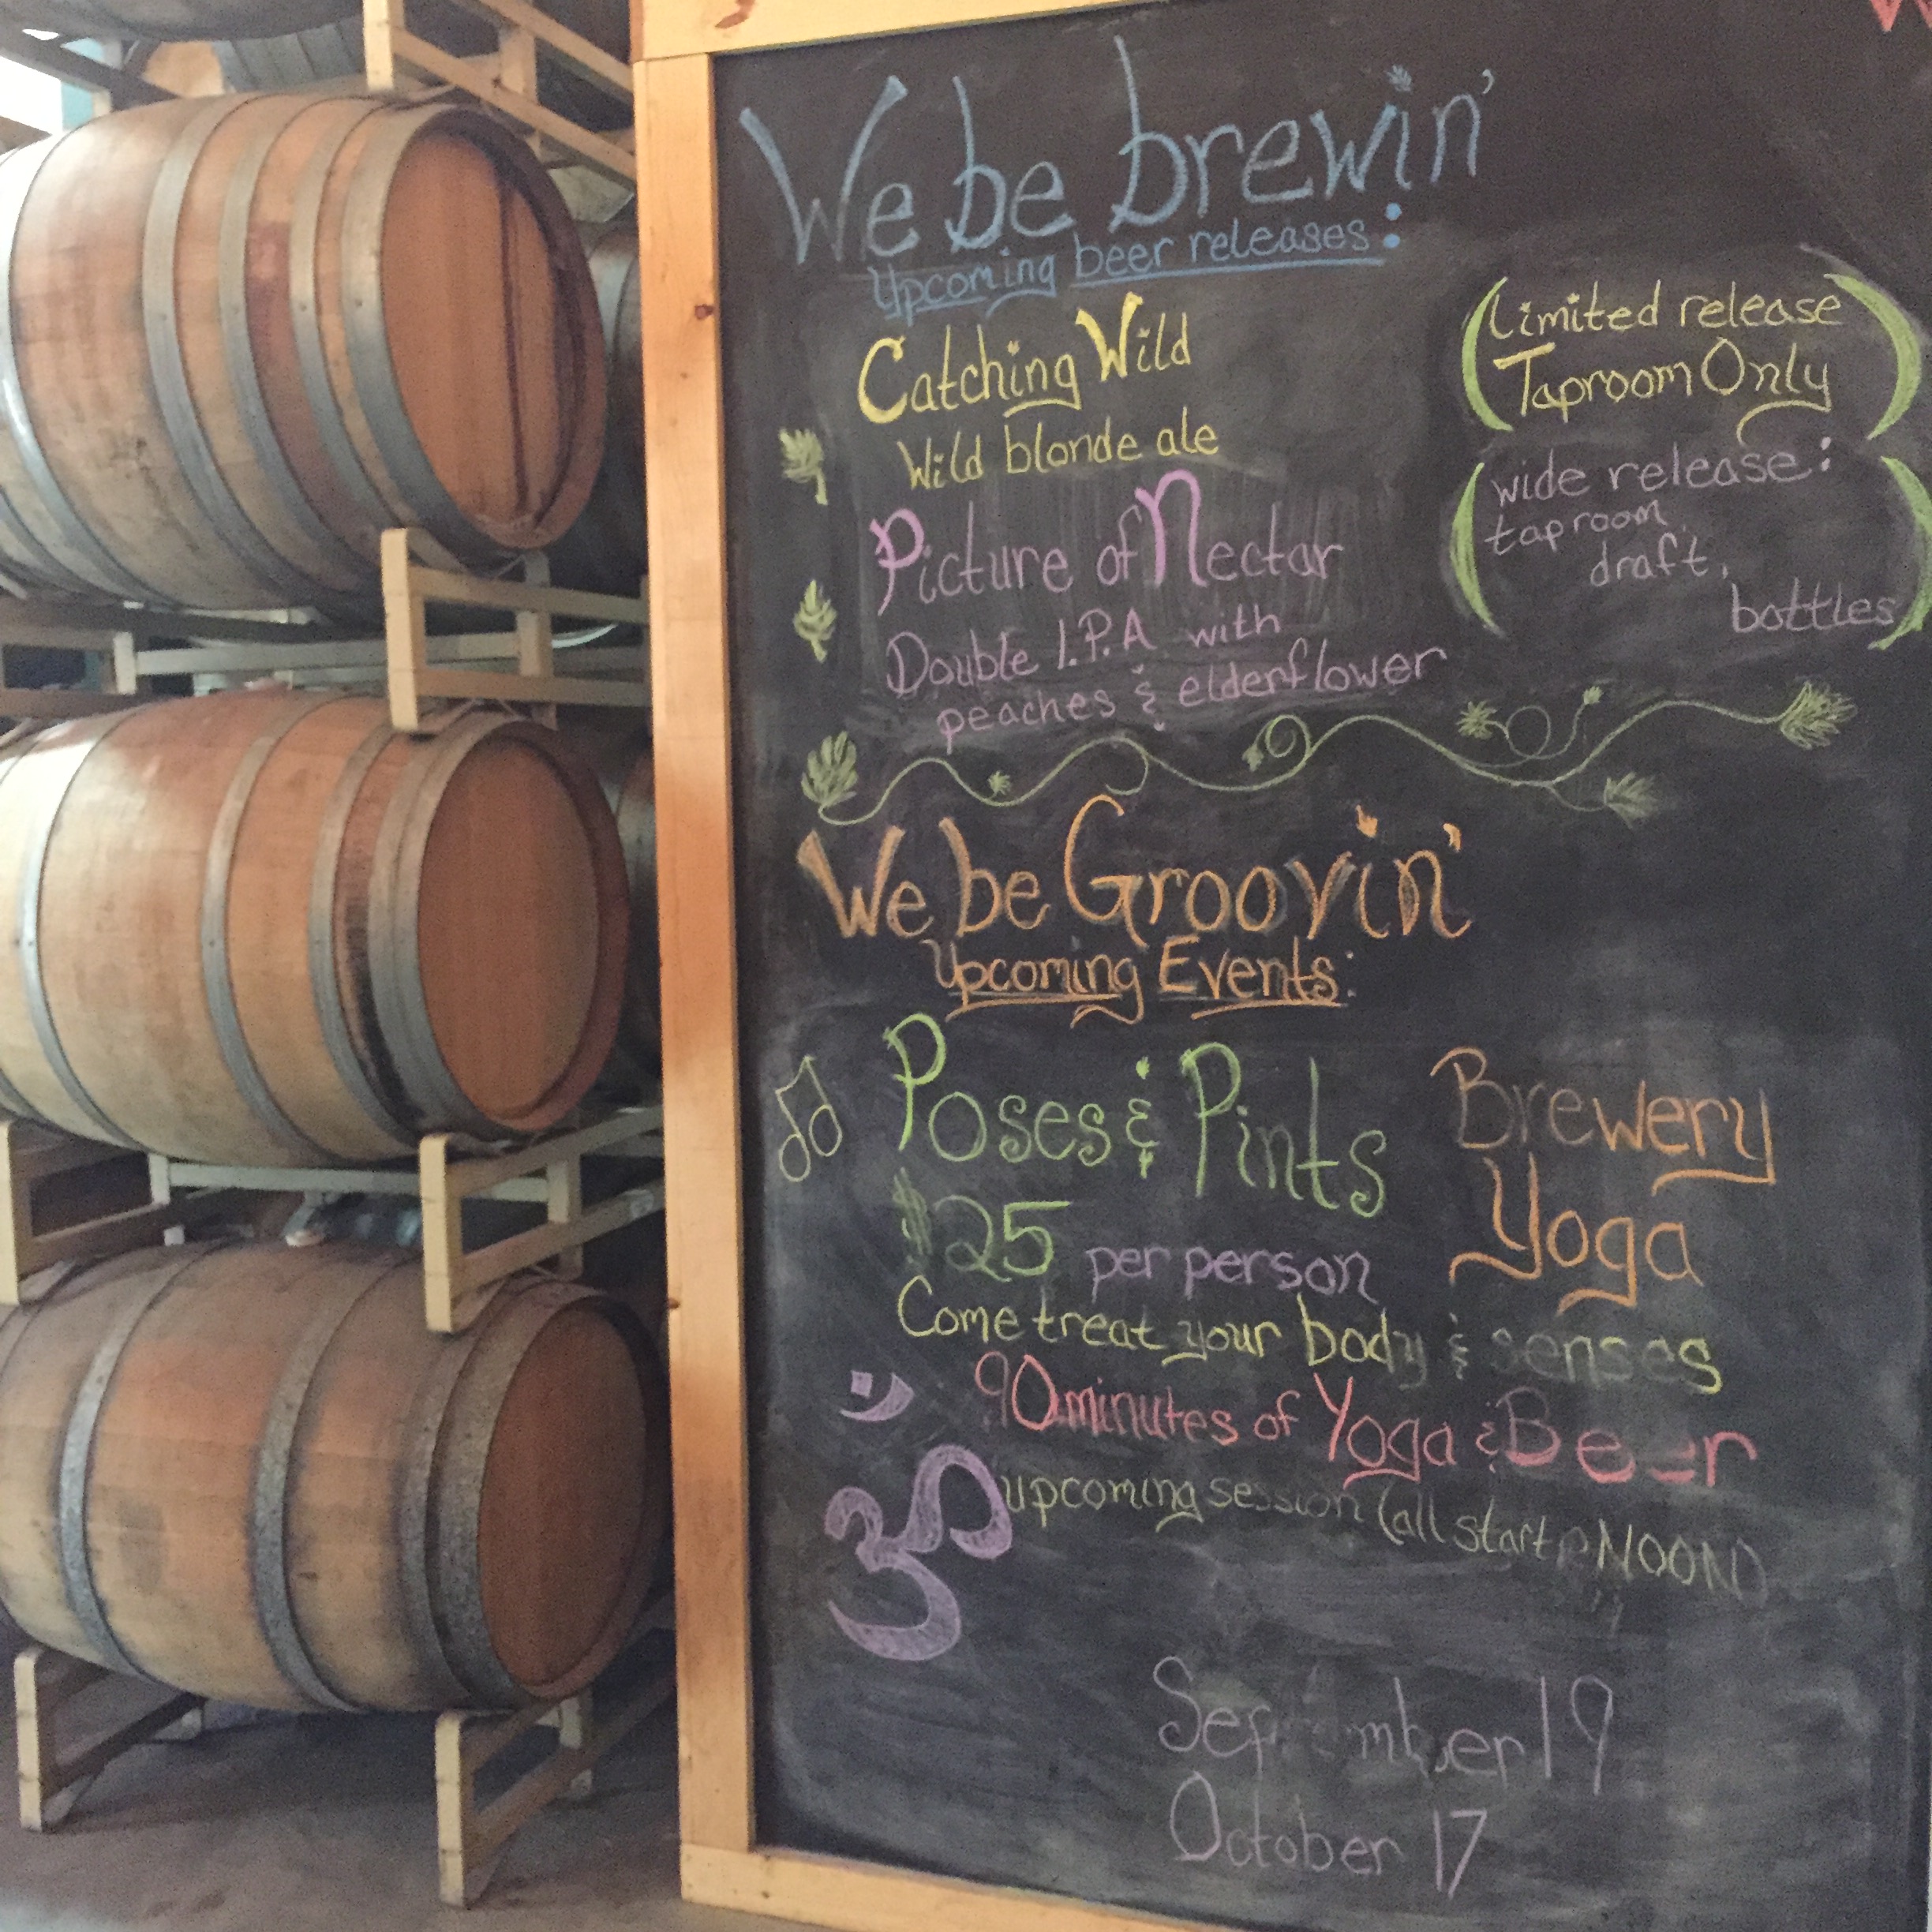 We be brewin'
Upcoming beer releases:
Catching Wild
Wild blonde ale
(Limited release
Taproom Only)
Picture of Nectar
Double I.P.A with
peaches & elderflower
(wide release:
taproom,
draft,
bottles)
We be Groovin'
Upcoming Events:
Poses & Pints
$25 per person
Brewery
Yoga
Come treat your body & senses
90 minutes of Yoga & Beer
ॐ
upcoming session (all start @ NOON)
September 19
October 17